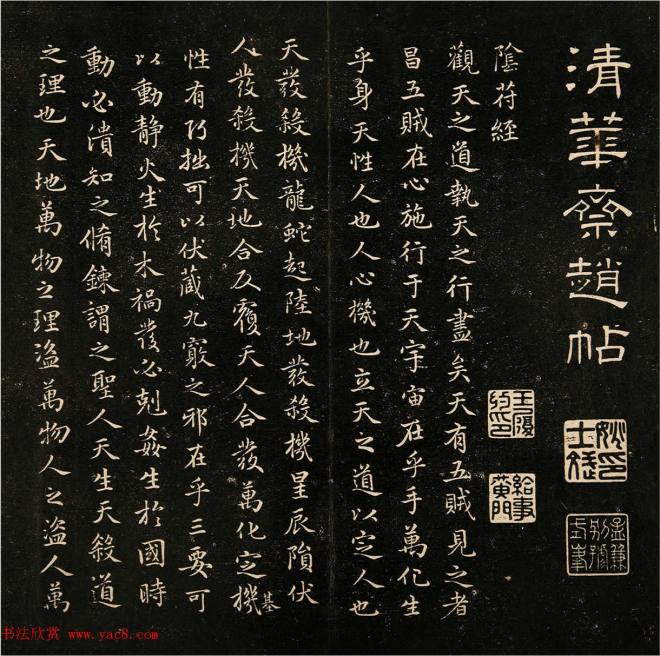 清華齋趙帖
陰符經
觀天之道執天之行盡矣天有五賊見之者
昌五賊在心施行于天宇宙在乎手萬化生
乎身天性人也人心機也立天之道以定人也
天發殺機龍蛇起陸地發殺機星辰隕伏
人發殺機天地合反覆天人合發萬化定機
基
性有巧拙可以伏藏九竅之邪在乎三要可
以動靜火生於木禍發必剋姦生於國時
動必潰知之脩鍊謂之聖人天生天殺道
之理也天地萬物之理盜萬物人之盜人萬
給事
黃門
书法欣赏 www.yac8.com